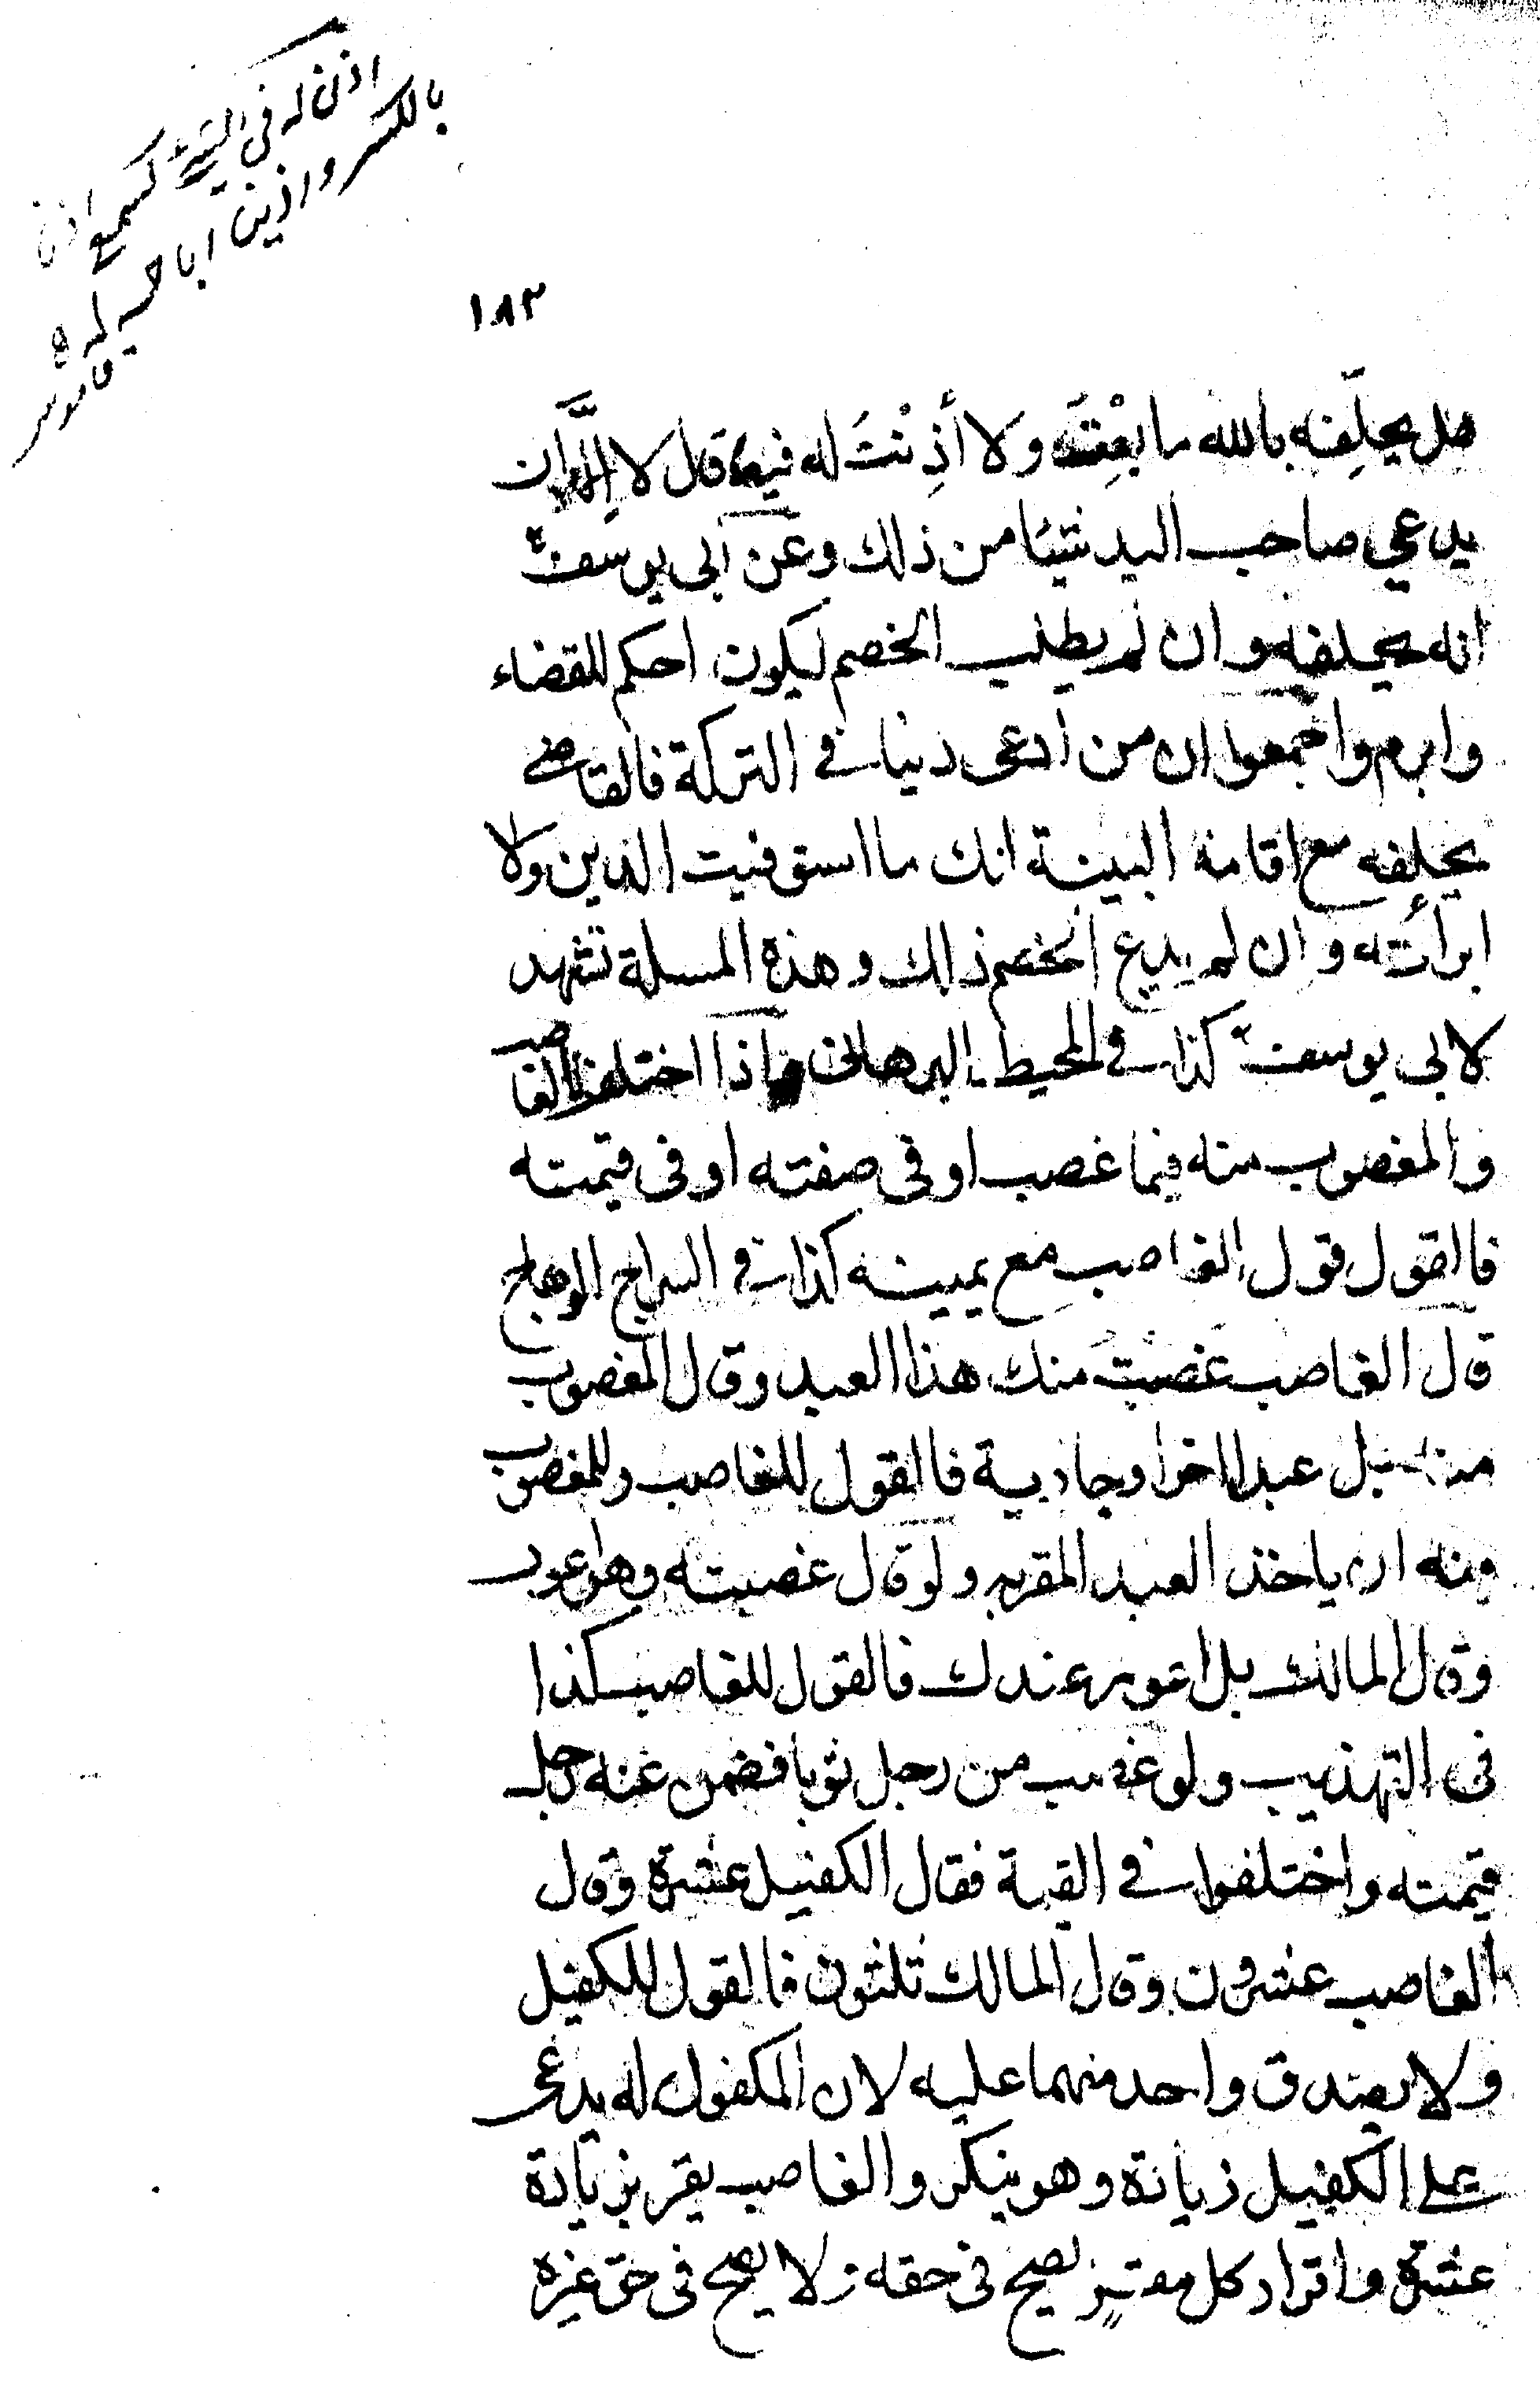 اذن له فى الشىء كسمع اذنا
بالكسر واذينا اباحه له
قاموس
١٨٣
هل يحلِّفه بالله ما بِعْتَه ولا أَذِنْتَ له فيه قال لا إلَّا ان
يدعي صاحب اليد شيئا من ذلك وعن ابى يوسف
انه يحلفه وان لم يطلب الخصم ليكون احكم للقضاء
وابرم واجمعوا ان من ادعى دينا في التركة فالقاضي
يحلفه مع اقامة البينة انك ما استوفيت الدين ولا
ابرأته وان لم يدع الخصم ذلك وهذه المسلة تشهد
لابى يوسف كذا في المحيط البرهانى واذا اختلف الغاصب
والمغصوب منه فيما غصب او فى صفته او فى قيمته
فالقول قول الغاصب مع يمينه كذا في السراج الوهاج
قال الغاصب غَصَبْتُ منك هذا العبد وقال المغصوب
منه بل عبدا اخر او جارية فالقول للغاصب وللمغصوب
منه ان ياخذ العبد المقر به ولو قال غصبته وهو اعور
وقال المالك بل اعور عندك فالقول للغاصب كذا
فى التهذيب ولو غصب من رجل ثوبا فضمن عنه رجل
قيمته واختلفوا في القيمة فقال الكفيل عشرة وقال
الغاصب عشرون وقال المالك ثلثون فالقول للكفيل
ولا يصدق واحد منهما عليه لان المكفول له يدعى
على الكفيل زيادة وهو ينكر والغاصب يقر بزيادة
عشرة واقرار كل مقر يصح فى حقه ولا يصح فى حق غيره